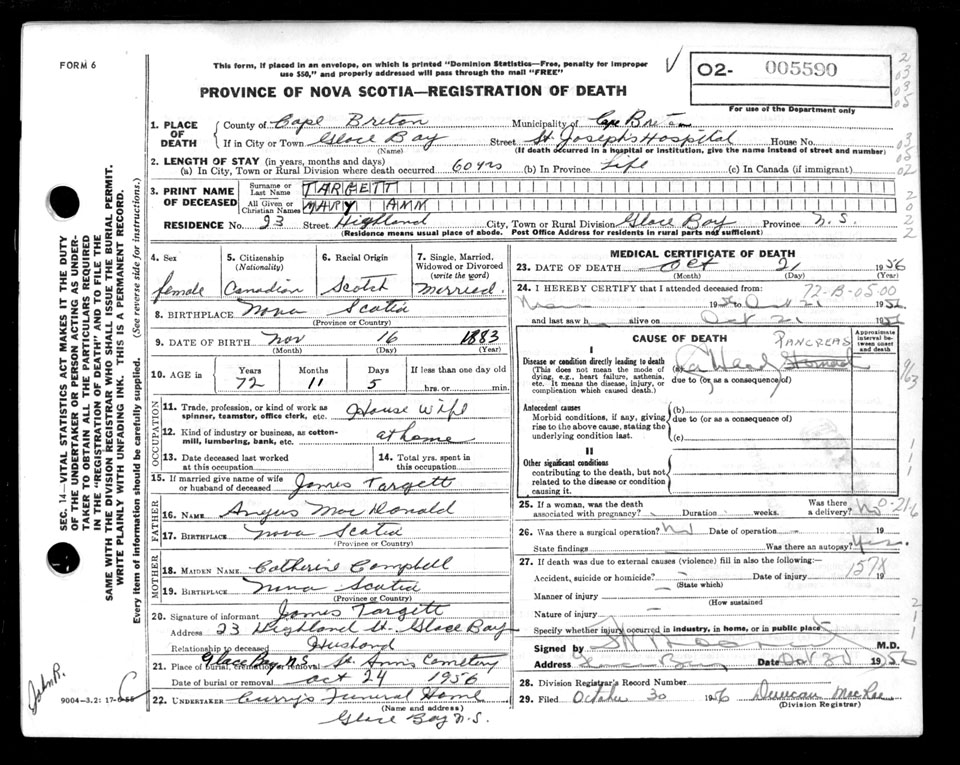 FORM 6
This form, if placed in an envelope, on which is printed "Dominion Statistics—Free, penalty for improper
use $50," and properly addressed will pass through the mail "FREE"
PROVINCE OF NOVA SCOTIA—REGISTRATION OF DEATH
02- 005590
For use of the Department only
1. PLACE OF DEATH
County of Cape Breton Municipality of Cape Breton
If in City or Town Glace Bay Street St. Joseph's Hospital House No.
(Name) (If death occurred in a hospital or institution, give the name instead of street and number)
2. LENGTH OF STAY (in years, months and days)
(a) In City, Town or Rural Division where death occurred 60 yrs (b) In Province Life (c) In Canada (if immigrant)
3. PRINT NAME OF DECEASED
Surname or Last Name TARGETT
All Given or Christian Names MARY ANN
RESIDENCE No. 23 Street Highland City, Town or Rural Division Glace Bay Province N.S.
(Residence means usual place of abode. Post Office Address for residents in rural parts not sufficient)
4. Sex female
5. Citizenship (Nationality) Canadian
6. Racial Origin Scotch
7. Single, Married, Widowed or Divorced (write the word) Married
8. BIRTHPLACE Nova Scotia
(Province or Country)
9. DATE OF BIRTH Nov 16 1883
(Month) (Day) (Year)
10. AGE in Years Months Days If less than one day old
72 11 5 hrs. or min.
OCCUPATION
11. Trade, profession, or kind of work as spinner, teamster, office clerk, etc. House Wife
12. Kind of industry or business, as cotton-mill, lumbering, bank, etc. at home
13. Date deceased last worked at this occupation
14. Total yrs. spent in this occupation
15. If married give name of wife or husband of deceased James Targett
FATHER
16. NAME Angus MacDonald
17. BIRTHPLACE Nova Scotia
(Province or Country)
MOTHER
18. MAIDEN NAME Catherine Campbell
19. BIRTHPLACE Nova Scotia
(Province or Country)
20. Signature of informant James Targett
Address 23 Highland St. Glace Bay
Relationship to deceased Husband
21. Place of burial, cremation or removal Glace Bay N.S. St. Ann's Cemetery
Date of burial or removal Oct 24 1956
22. UNDERTAKER Curry's Funeral Home
(Name and address)
Glace Bay N.S.
MEDICAL CERTIFICATE OF DEATH
23. DATE OF DEATH Oct 21 1956
(Month) (Day) (Year)
24. I HEREBY CERTIFY that I attended deceased from: 72-B-0500
19 Oct 21 19
and last saw h alive on Oct 21 19
CAUSE OF DEATH
Approximate interval between onset and death
I
PANCREAS
Disease or condition directly leading to death
(This does not mean the mode of dying, e.g., heart failure, asthenia, etc. It means the disease, injury, or complication which caused death.)
(a) Head Stomach
due to (or as a consequence of)
Antecedent causes
Morbid conditions, if any, giving rise to the above cause, stating the underlying condition last.
(b)
due to (or as a consequence of)
(c)
II
Other significant conditions
contributing to the death, but not related to the disease or condition causing it.
25. If a woman, was the death associated with pregnancy? Duration weeks. Was there a delivery? No
26. Was there a surgical operation? No Date of operation 19
State findings Was there an autopsy? Yes.
27. If death was due to external causes (violence) fill in also the following: 157X
Accident, suicide or homicide? Date of injury 19
(State which)
Manner of injury
(How sustained)
Nature of injury
Specify whether injury occurred in industry, in home, or in public place
Signed by M.D.
Address Glace Bay Date Oct 30 1956
28. Division Registrar's Record Number
29. Filed October 30 1956 Duncan MacRae
(Division Registrar)
SEC. 14—VITAL STATISTICS ACT MAKES IT THE DUTY
OF THE UNDERTAKER OR PERSON ACTING AS UNDER-
TAKER TO OBTAIN ALL THE PARTICULARS REQUIRED
IN THE "REGISTRATION OF DEATH" AND TO FILE THE
SAME WITH THE DIVISION REGISTRAR WHO SHALL ISSUE THE BURIAL PERMIT.
WRITE PLAINLY WITH UNFADING INK. THIS IS A PERMANENT RECORD.
Every item of information should be carefully supplied. (See reverse side for instructions.)
John R.